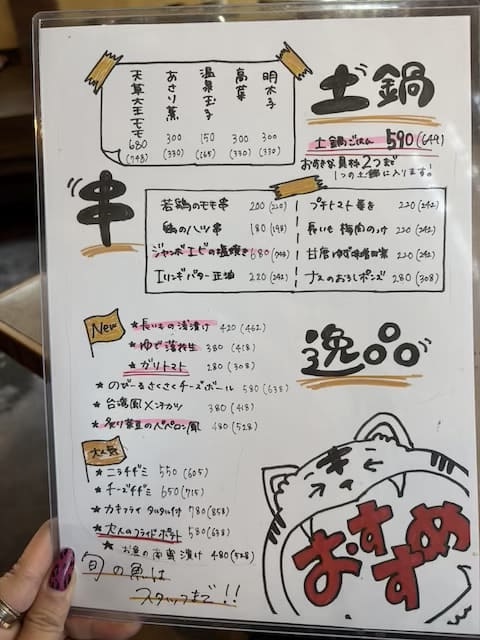 土鍋
土鍋ごはん 590 (649)
お好きな具材2つまで
1つの土鍋に入ります!
明太子 300 (330)
高菜 300 (330)
温泉玉子 150 (165)
あさり煮 300 (330)
天草大王モモ 680 (748)
串
若鶏のモモ串 200 (220)
鶏のハツ串 180 (198)
ジャンボエビの塩焼き 680 (748)
エリンギバター正油 220 (242)
プチトマト巻き 220 (242)
長いも 梅肉のっけ 220 (242)
甘唐ゆず味噌田楽 220 (242)
ナスのおろしポンズ 280 (308)
逸品
New
★ 長いもの浅漬け 420 (462)
★ ゆで落花生 380 (418)
★ ガリトマト 280 (308)
★ のび〜るさくさくチーズボール 580 (638)
★ 台湾風メンチカツ 380 (418)
★ 炙り枝豆のペペロン風 480 (528)
大人気
★ ニラチヂミ 550 (605)
★ チーズチヂミ 650 (715)
★ カキフライ タルタル付 780 (858)
★ 大人のフライドポテト 580 (638)
★ お魚の南蛮漬け 480 (528)
旬の魚は
スタッフまで!!
おすすめ